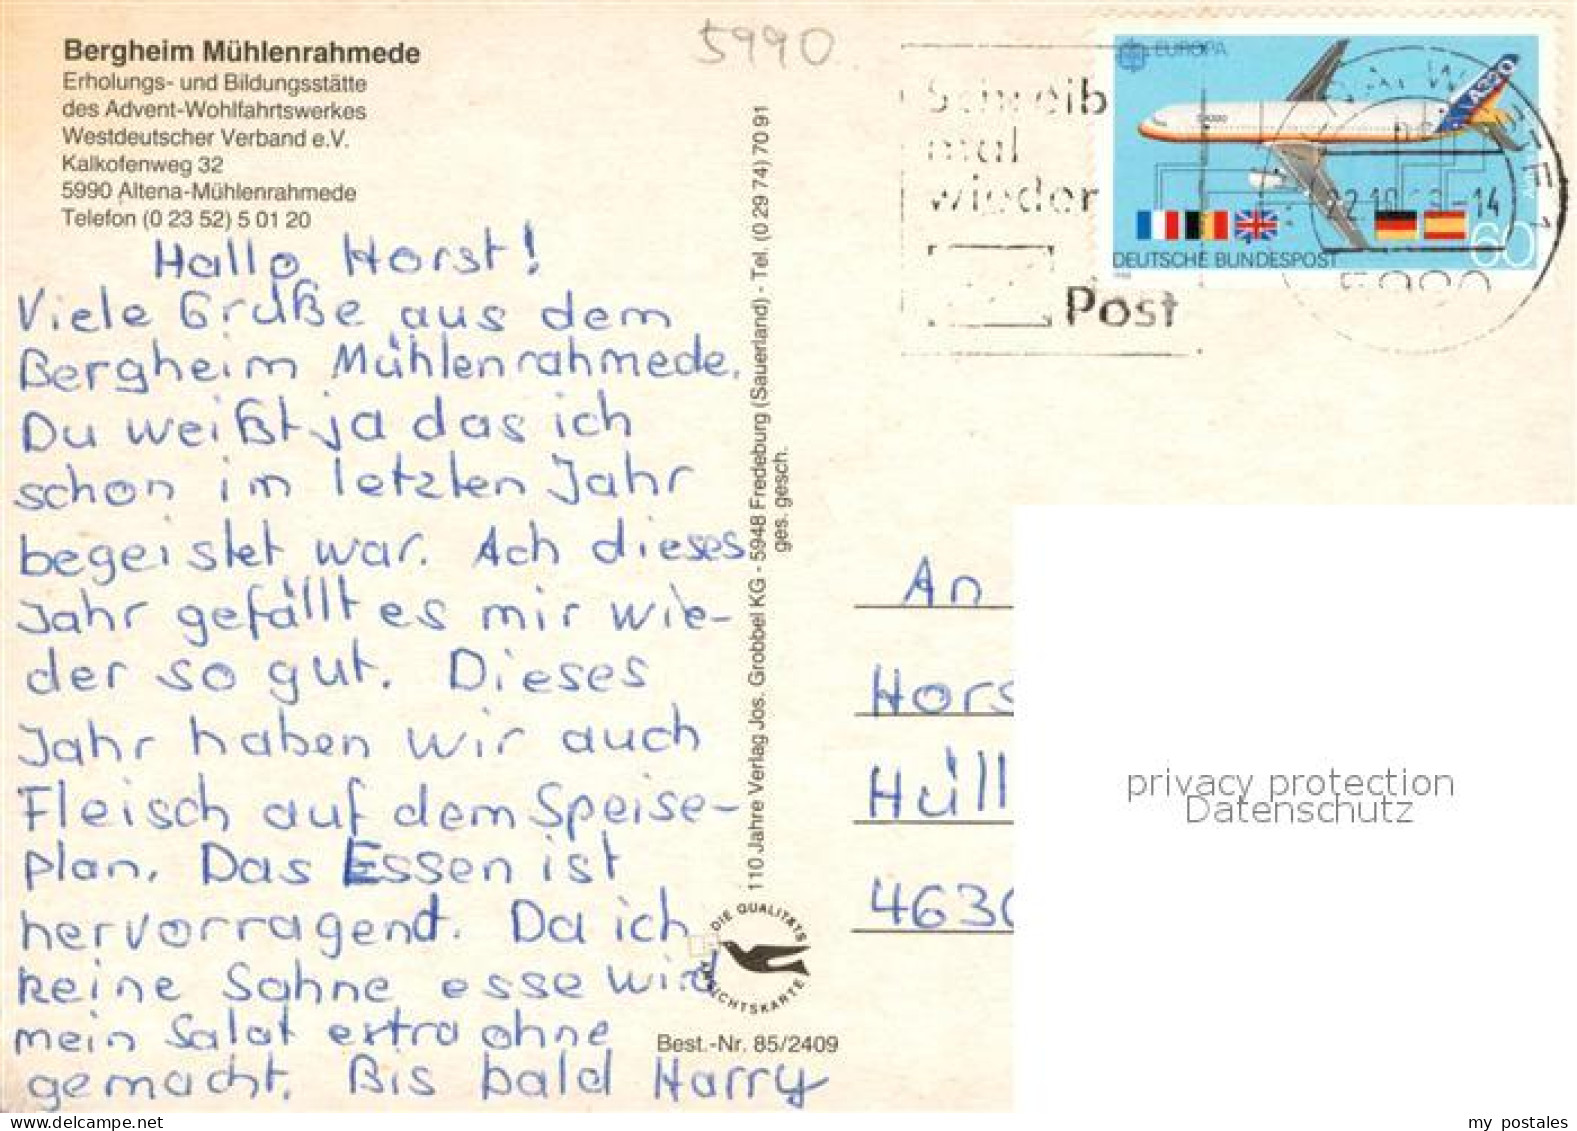 Bergheim Mühlenrahmede
Erholungs- und Bildungsstätte
des Advent-Wohlfahrtswerkes
Westdeutscher Verband e.V.
Kalkofenweg 32
5990 Altena-Mühlenrahmede
Telefon (0 23 52) 5 01 20
5990
Hallo Horst!
Viele Grüße aus dem
Bergheim Mühlenrahmede.
Du weißt ja das ich
schon im letzten Jahr
begeistet war. Ach dieses
Jahr gefällt es mir wie-
der so gut. Dieses
Jahr haben wir auch
Fleisch auf dem Speise-
plan. Das Essen ist
hervorragend. Da ich
keine Sahne esse wird
mein Salat extra ohne
gemacht. Bis bald Harry
110 Jahre Verlag Jos. Grobbel KG - 5948 Fredeburg (Sauerland) - Tel. (0 29 74) 70 91
ges. gesch.
DIE QUALITÄTS
ANSICHTSKARTE
Best.-Nr. 85/2409
Schreib
mal
wieder
Post
EUROPA
A320
DEUTSCHE BUNDESPOST
60
1988
An
Hors
Hüll
463
privacy protection
Datenschutz
my postales